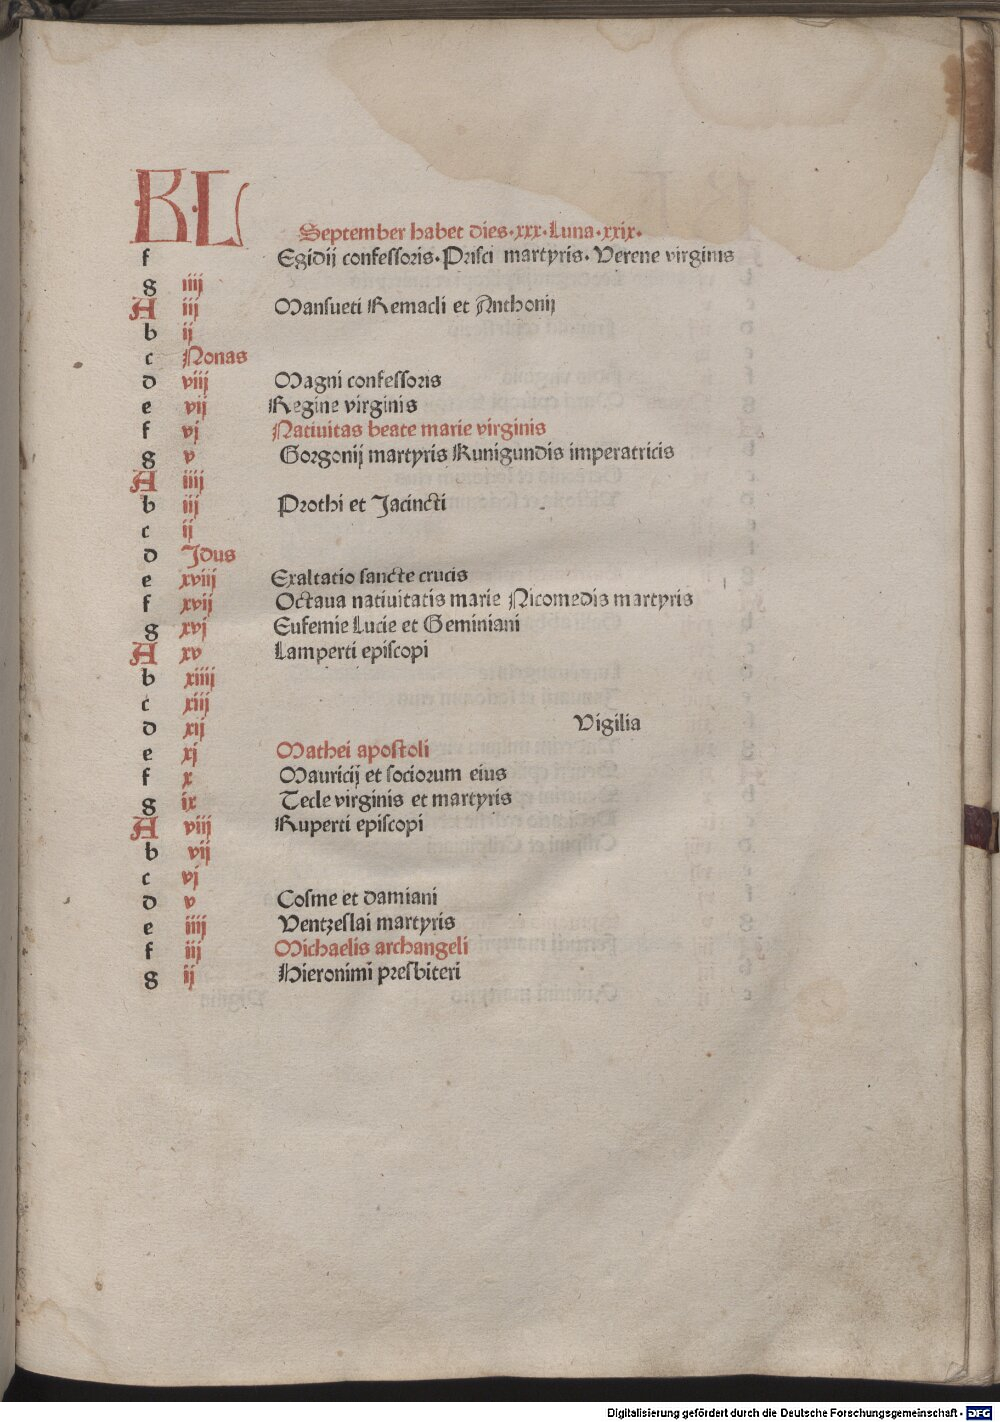 KL
September habet dies·xxx·Luna·xxix·
f Egidij confessoris·Prisci martyris·Verene virginis
g iiij
A iij Mansueti Remacli et Anthonij
b ij
c Nonas
d viij Magni confessoris
e vij Regine virginis
f vj Natiuitas beate marie virginis
g v Gorgonij martyris Kunigundis imperatricis
A iiij
b iij Prothi et Jacincti
c ij
d Jdus
e xviij Exaltatio sancte crucis
f xvij Octaua natiuitatis marie Nicomedis martyris
g xvj Eufemie Lucie et Geminiani
A xv Lamperti episcopi
b xiiij
c xiij
d xij Vigilia
e xj Mathei apostoli
f x Mauricij et sociorum eius
g ix Tecle virginis et martyris
A viij Ruperti episcopi
b vij
c vj
d v Cosme et damiani
e iiij Ventzeslai martyris
f iij Michaelis archangeli
g ij Hieronimi presbiteri
Digitalisierung gefördert durch die Deutsche Forschungsgemeinschaft - DFG